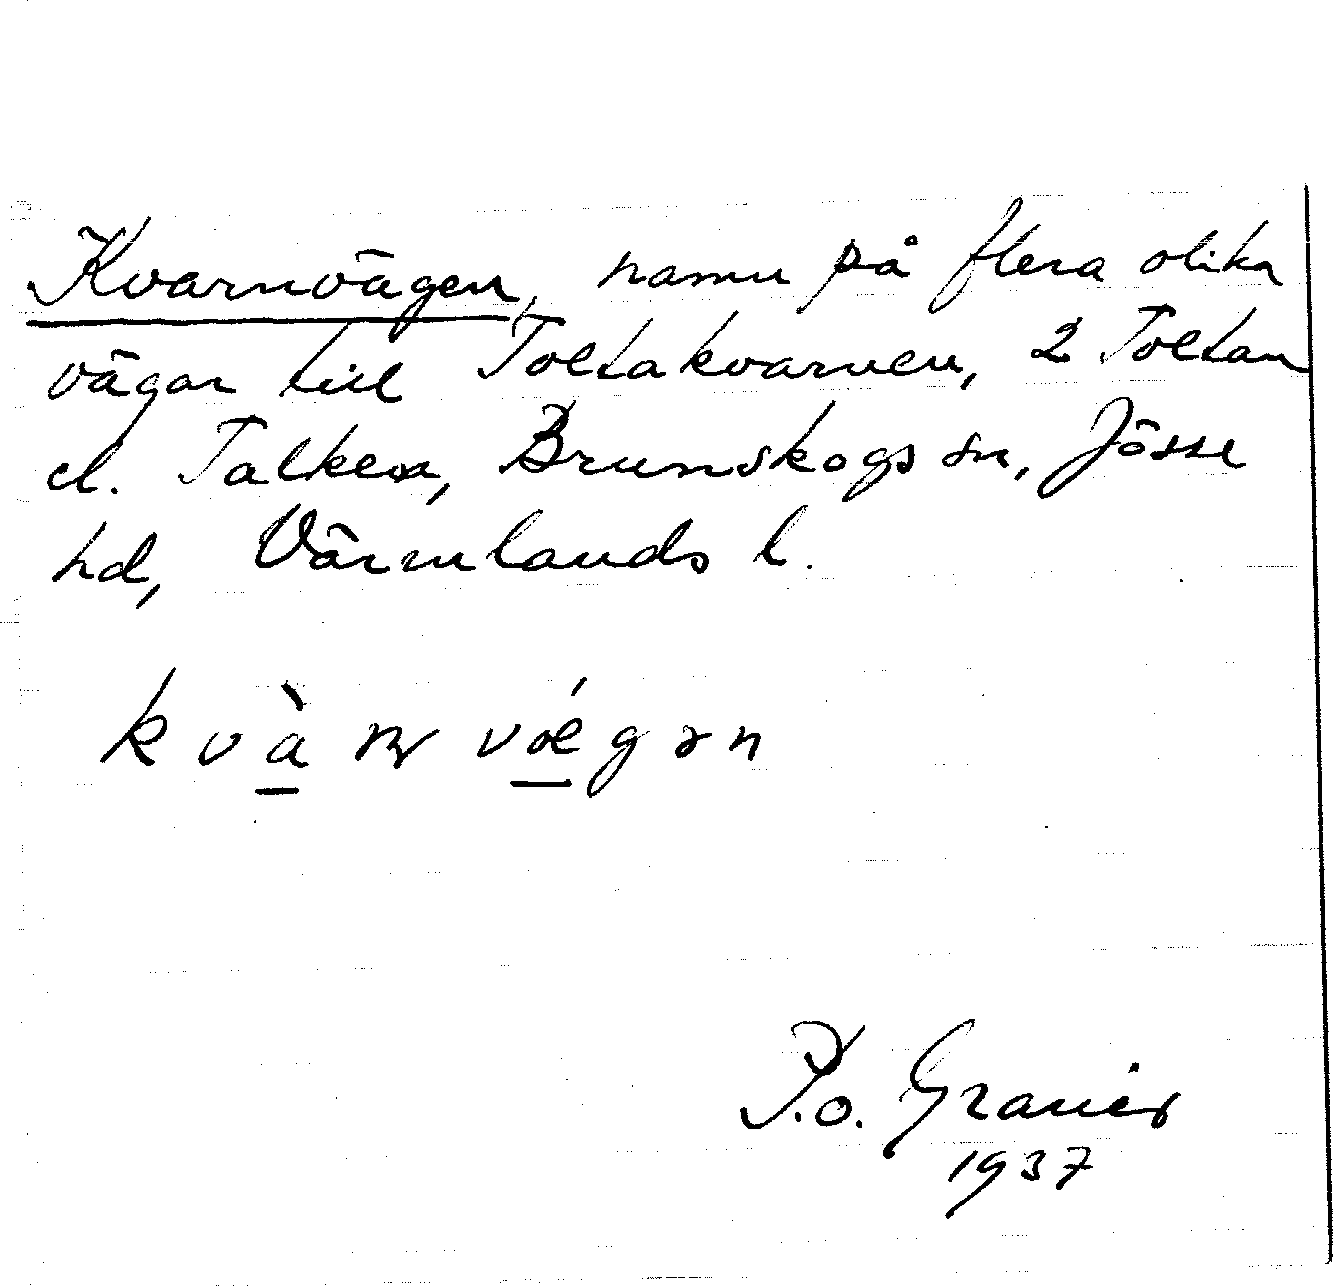 Kvarnvägen, namn på flera olika
vägar till Toltakvarnen, 2 Toltan
el. Talken, Brunskogs sn, Jösse
hd, Värmlands l.
kvàɳ vǽgən
P.o. Graner
1937